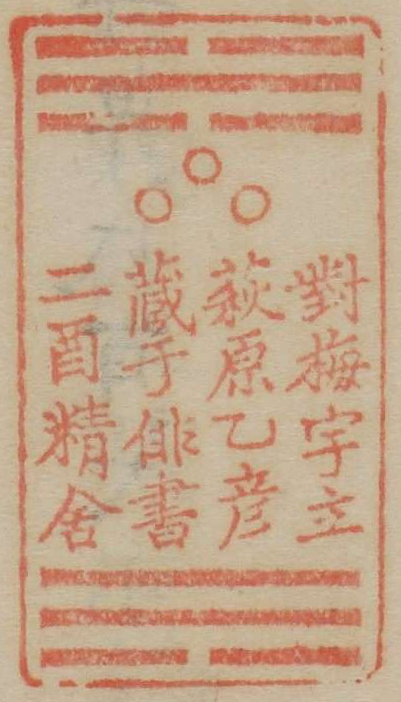 對梅宇立
萩原乙彦
蔵于俳書
二酉精舍